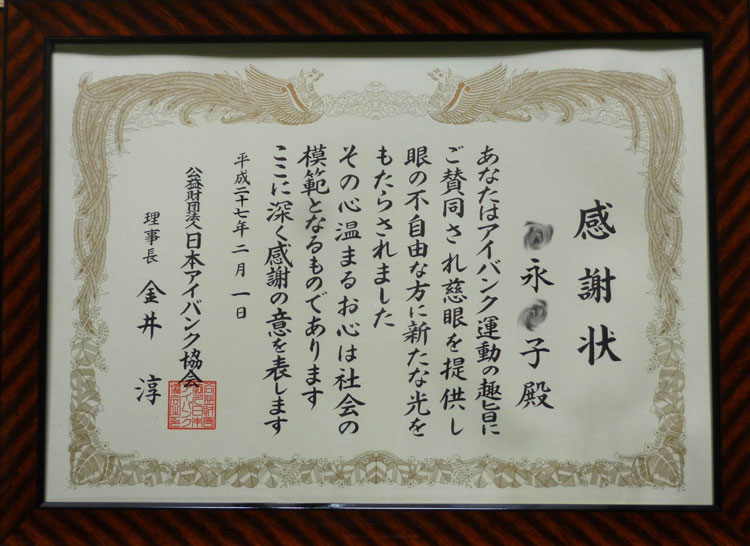 感謝状
永 子殿
あなたはアイバンク運動の趣旨に
ご賛同され慈眼を提供し
眼の不自由な方に新たな光を
もたらされました
その心温まるお心は社会の
模範となるものであります
ここに深く感謝の意を表します
平成二十七年二月一日
公益財団法人日本アイバンク協会
理事長 金井 淳